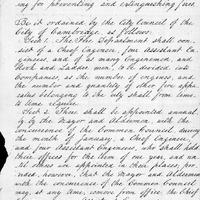 ing for preventing and extinguishing fires
Be it ordained by the City Council of the
City of Cambridge, as follows:
Sect. 1. The Fire Department shall con-
sist of a Chief Engineer, four assistant En-
gineers, and of as many Enginemen, and
Hook and Ladder men, to be divided into
Companies, as the number of engines, and
the number and quantity of other fire appa-
ratus belonging to the city shall from time
to time require.
Sect. 2. There shall be appointed annual-
ly by the Mayor and Aldermen, with the
concurrence of the Common Council, during
the month of January, a Chief Engineer,
and four Assistant Engineers, who shall hold
their offices for the term of one year, and un-
til others are appointed in their places; pro-
vided, however, that the Mayor and Aldermen
with the concurrence of the Common Council
may, at any time, remove from office the Chief